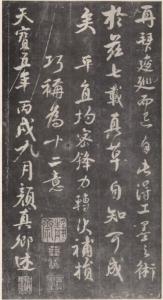 再拜逡巡而已自此得工墨之術
於茲七載真草自知可成
矣 平直均密鋒力轉決補損
巧稱為十二意
天寶五年丙戌九月顏真卿述